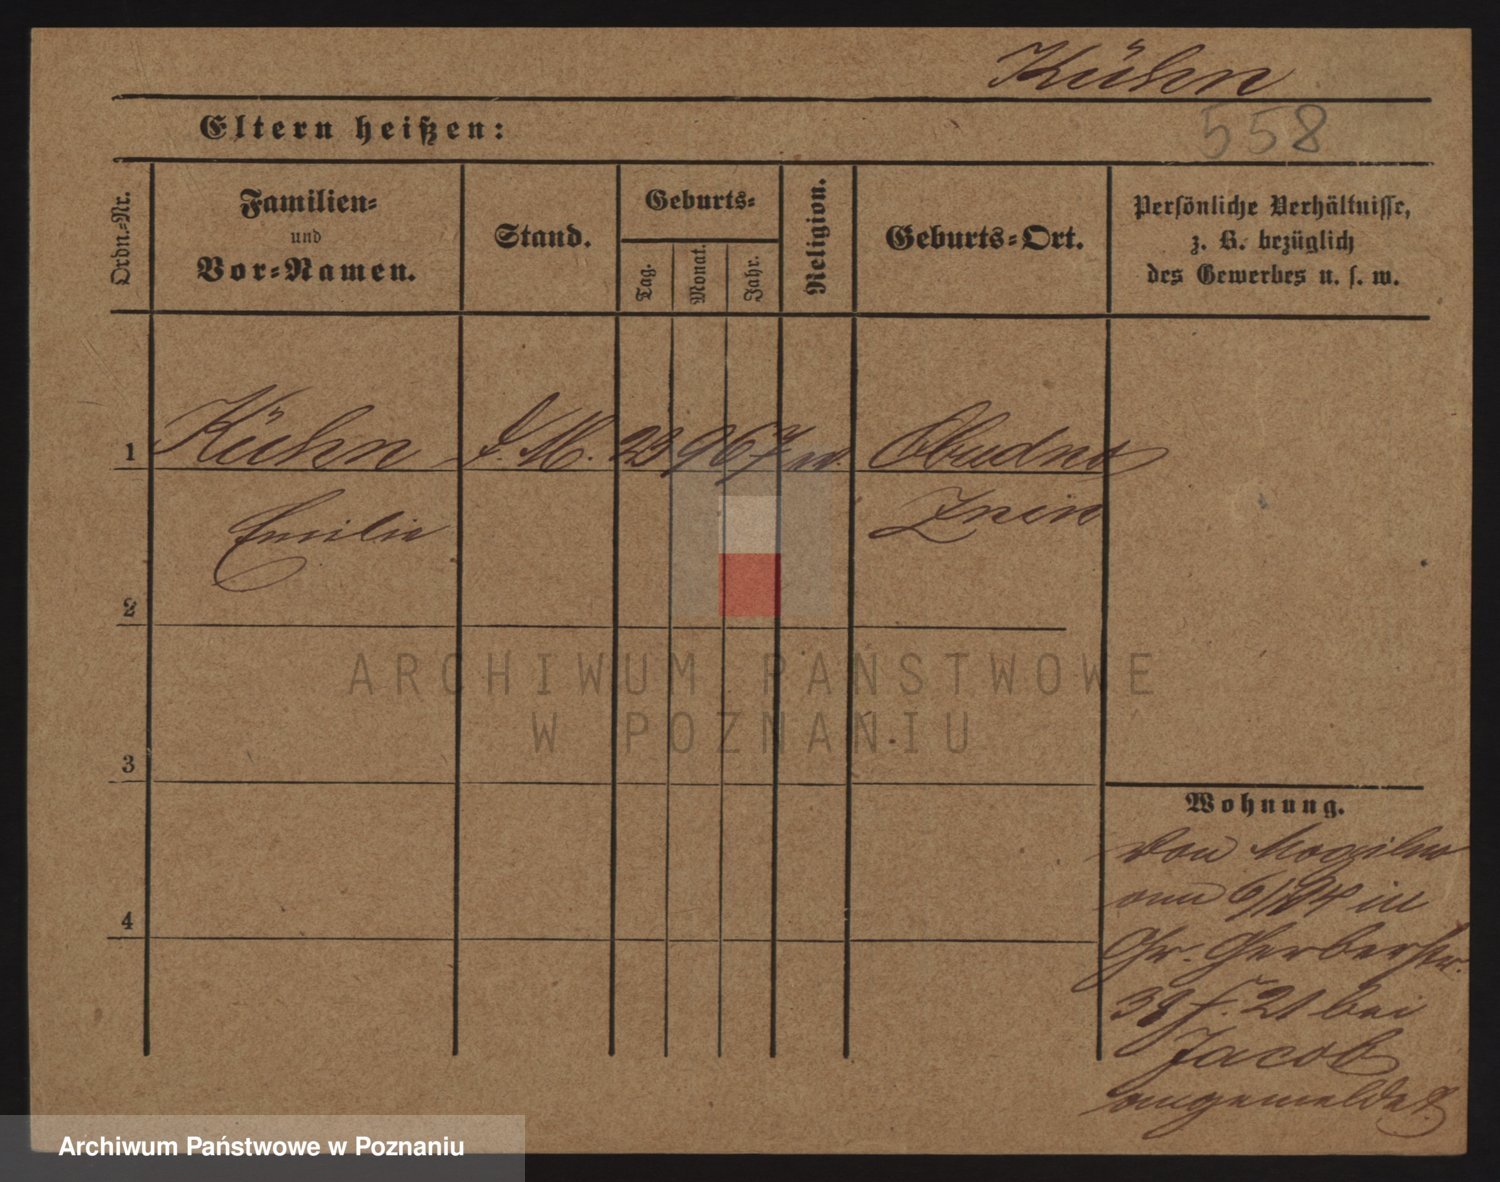 Kühn
558
Eltern heißen:
Ordn.-Nr.
Familien-
und
Vor-Namen.
Stand.
Geburts-
Tag.
Monat.
Jahr.
Religion.
Geburts-Ort.
Persönliche Verhältnisse,
z. B. bezüglich
des Gewerbes u. s. w.
1 Kühn D. M. 23 9 67 ev. Obudno
Emilie Znin
2
3
4
Wohnung.
von Mogilno
am 6/1 94 in
Gr. Gerberstr.
38 f. 21 bei
Jacob
angemeldet.
ARCHIWUM PAŃSTWOWE
W POZNANIU
Archiwum Państwowe w Poznaniu